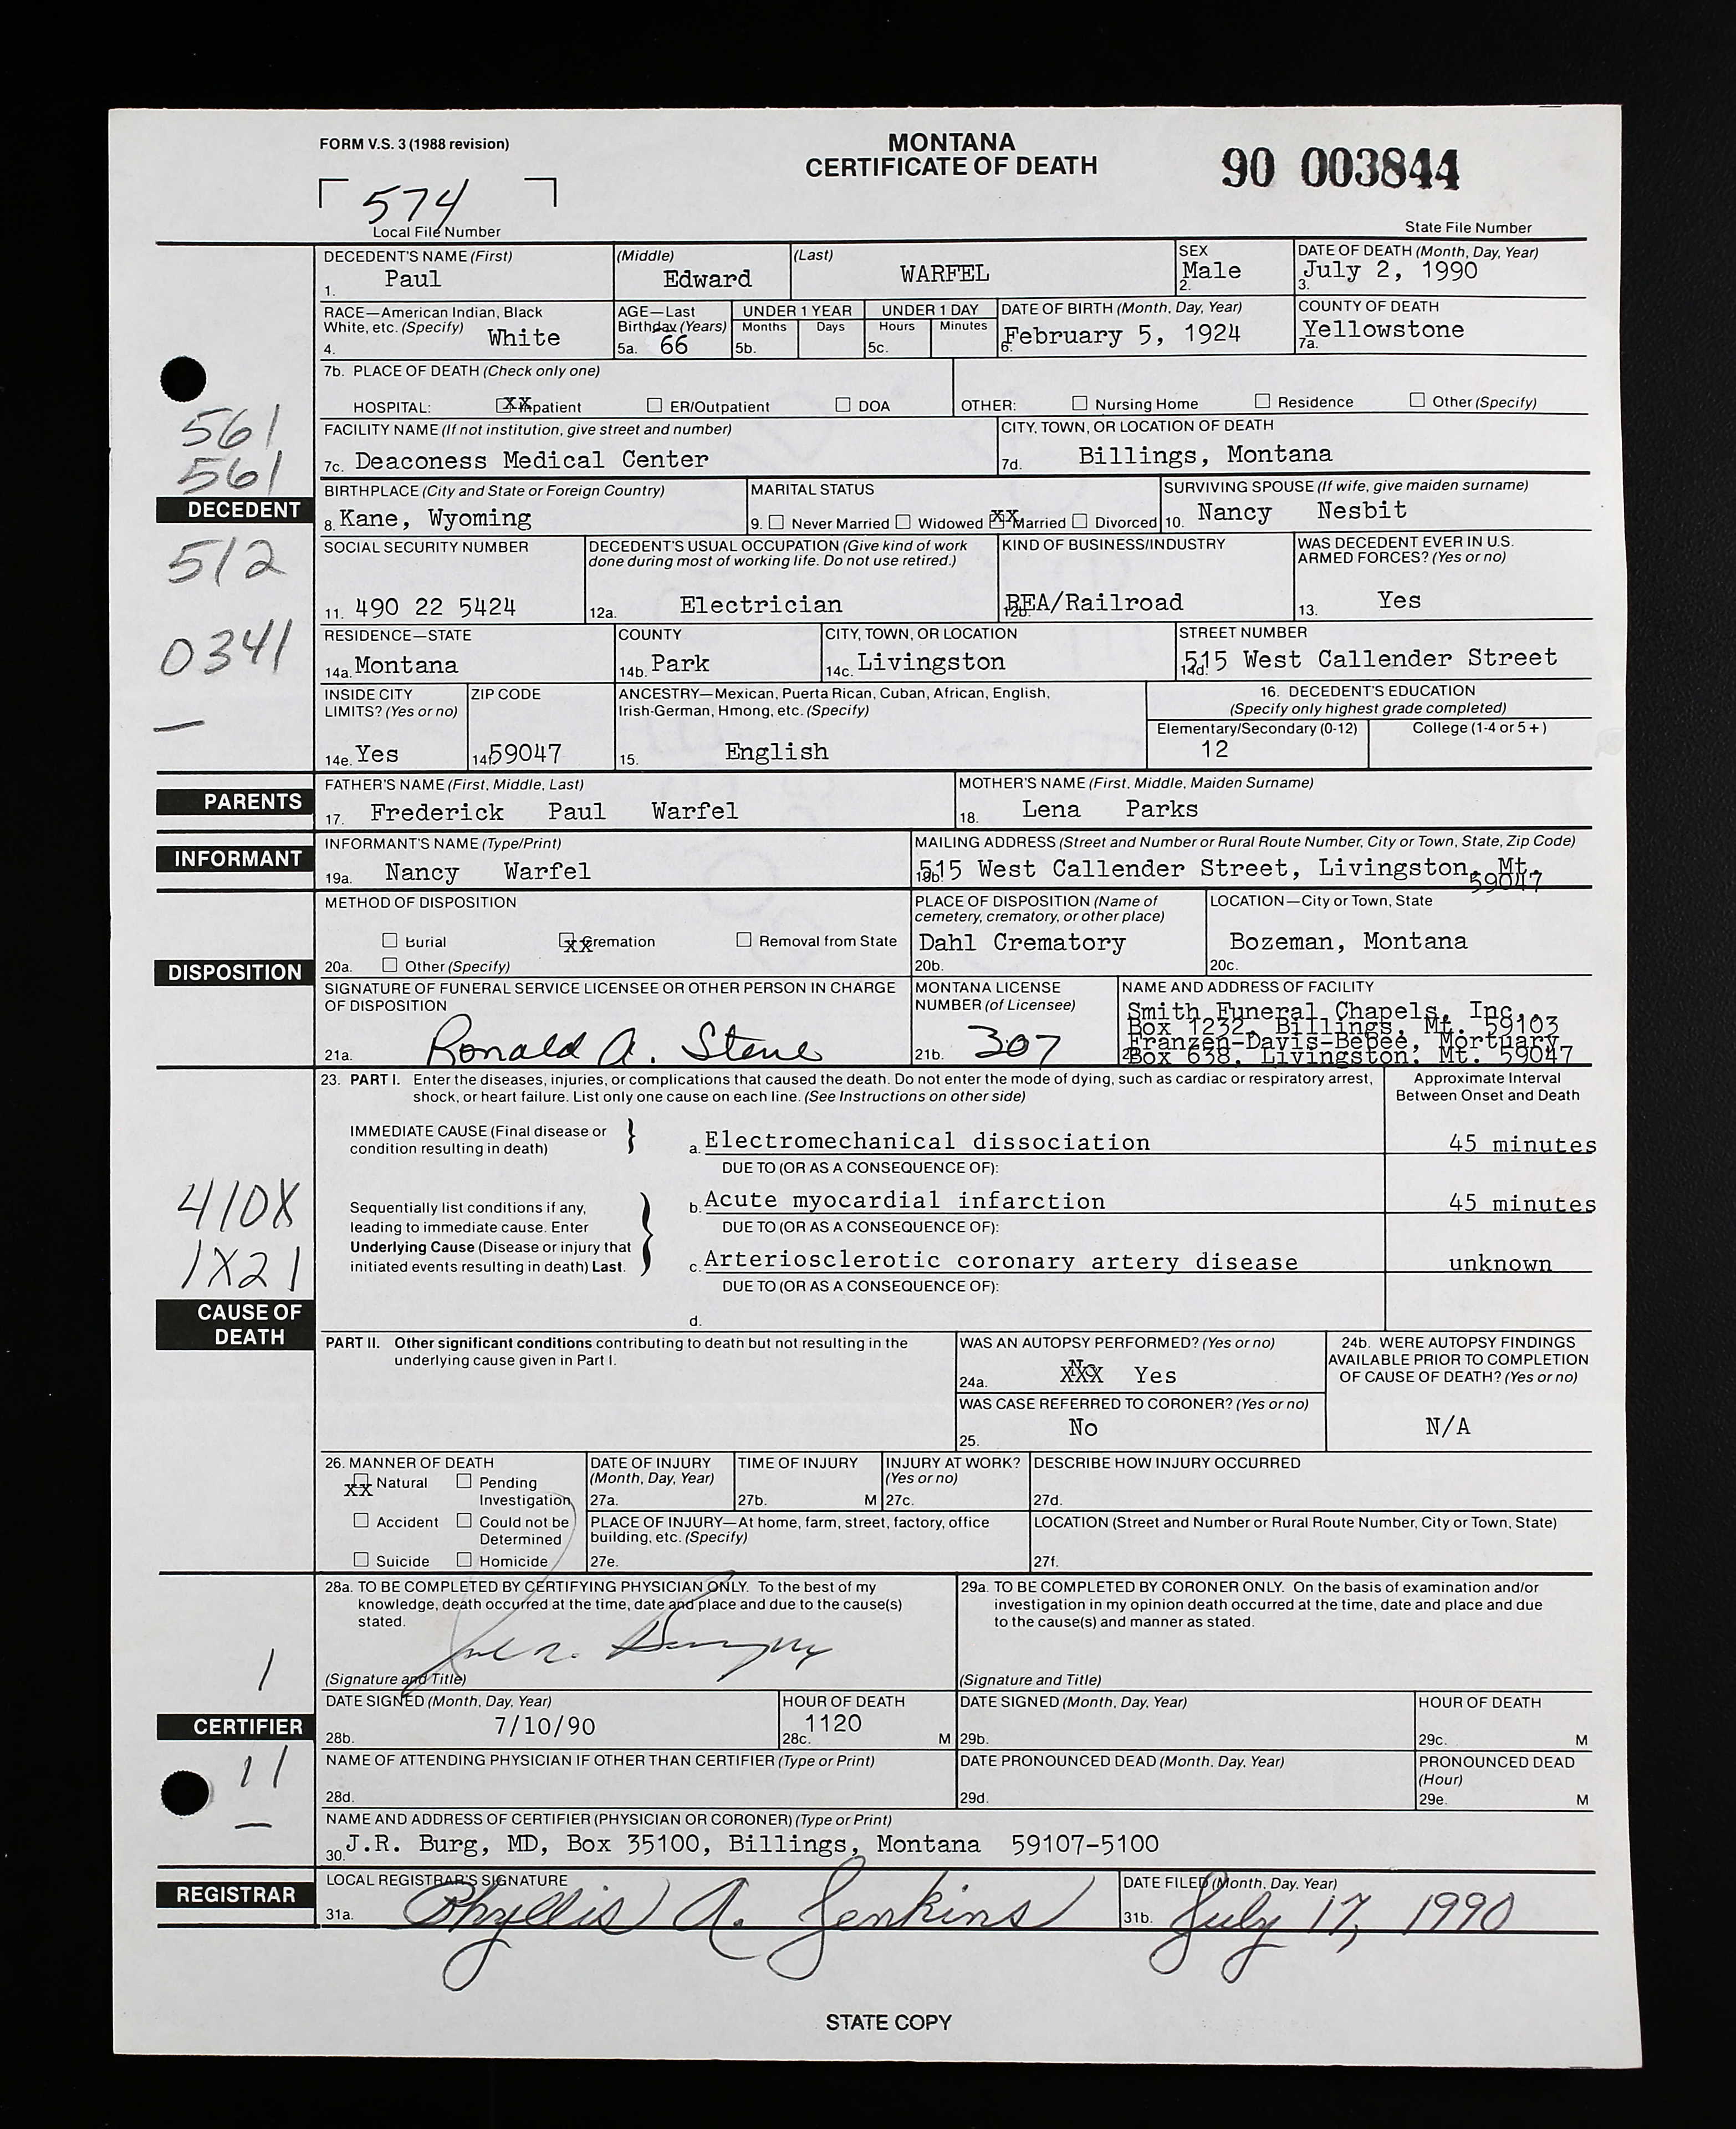 FORM V.S. 3 (1988 revision)
MONTANA
CERTIFICATE OF DEATH
90 003844
574
Local File Number
State File Number
DECEDENT'S NAME (First) (Middle) (Last) SEX DATE OF DEATH (Month, Day, Year)
1. Paul Edward WARFEL 2. Male 3. July 2, 1990
RACE—American Indian, Black
White, etc. (Specify)
4. White
AGE—Last
Birthday (Years)
5a. 66
UNDER 1 YEAR
Months Days
5b.
UNDER 1 DAY
Hours Minutes
5c.
DATE OF BIRTH (Month, Day, Year)
6. February 5, 1924
COUNTY OF DEATH
7a. Yellowstone
7b. PLACE OF DEATH (Check only one)
HOSPITAL: XX Inpatient ER/Outpatient DOA OTHER: Nursing Home Residence Other (Specify)
561
561
FACILITY NAME (If not institution, give street and number)
7c. Deaconess Medical Center
CITY, TOWN, OR LOCATION OF DEATH
7d. Billings, Montana
DECEDENT
BIRTHPLACE (City and State or Foreign Country)
8. Kane, Wyoming
MARITAL STATUS
9. Never Married Widowed XX Married Divorced
SURVIVING SPOUSE (If wife, give maiden surname)
10. Nancy Nesbit
512
SOCIAL SECURITY NUMBER
11. 490 22 5424
DECEDENT'S USUAL OCCUPATION (Give kind of work
done during most of working life. Do not use retired.)
12a. Electrician
KIND OF BUSINESS/INDUSTRY
12b. REA/Railroad
WAS DECEDENT EVER IN U.S.
ARMED FORCES? (Yes or no)
13. Yes
0341
RESIDENCE—STATE
14a. Montana
COUNTY
14b. Park
CITY, TOWN, OR LOCATION
14c. Livingston
STREET NUMBER
14d. 515 West Callender Street
—
INSIDE CITY
LIMITS? (Yes or no)
14e. Yes
ZIP CODE
14f. 59047
ANCESTRY—Mexican, Puerta Rican, Cuban, African, English,
Irish-German, Hmong, etc. (Specify)
15. English
16. DECEDENT'S EDUCATION
(Specify only highest grade completed)
Elementary/Secondary (0-12) College (1-4 or 5+)
12
PARENTS
FATHER'S NAME (First, Middle, Last)
17. Frederick Paul Warfel
MOTHER'S NAME (First, Middle, Maiden Surname)
18. Lena Parks
INFORMANT
INFORMANT'S NAME (Type/Print)
19a. Nancy Warfel
MAILING ADDRESS (Street and Number or Rural Route Number, City or Town, State, Zip Code)
19b. 515 West Callender Street, Livingston, Mt.
59047
DISPOSITION
METHOD OF DISPOSITION
Burial XX Cremation Removal from State
20a. Other (Specify)
PLACE OF DISPOSITION (Name of
cemetery, crematory, or other place)
Dahl Crematory
20b.
LOCATION—City or Town, State
Bozeman, Montana
20c.
SIGNATURE OF FUNERAL SERVICE LICENSEE OR OTHER PERSON IN CHARGE
OF DISPOSITION
21a. Ronald A. Stene
MONTANA LICENSE
NUMBER (of Licensee)
21b. 307
NAME AND ADDRESS OF FACILITY
Smith Funeral Chapels, Inc.,
Box 1232, Billings, Mt. 59103
Franzen-Davis-Bebee, Mortuary
Box 638, Livingston, Mt. 59047
23. PART I. Enter the diseases, injuries, or complications that caused the death. Do not enter the mode of dying, such as cardiac or respiratory arrest,
shock, or heart failure. List only one cause on each line. (See Instructions on other side)
Approximate Interval
Between Onset and Death
IMMEDIATE CAUSE (Final disease or
condition resulting in death)
a. Electromechanical dissociation 45 minutes
DUE TO (OR AS A CONSEQUENCE OF):
410X
1X21
Sequentially list conditions if any,
leading to immediate cause. Enter
Underlying Cause (Disease or injury that
initiated events resulting in death) Last.
b. Acute myocardial infarction 45 minutes
DUE TO (OR AS A CONSEQUENCE OF):
c. Arteriosclerotic coronary artery disease unknown
DUE TO (OR AS A CONSEQUENCE OF):
d.
CAUSE OF
DEATH
PART II. Other significant conditions contributing to death but not resulting in the
underlying cause given in Part I.
WAS AN AUTOPSY PERFORMED? (Yes or no)
No
24a. XXX Yes
24b. WERE AUTOPSY FINDINGS
AVAILABLE PRIOR TO COMPLETION
OF CAUSE OF DEATH? (Yes or no)
N/A
WAS CASE REFERRED TO CORONER? (Yes or no)
25. No
26. MANNER OF DEATH
XX Natural Pending
Investigation
Accident Could not be
Determined
Suicide Homicide
DATE OF INJURY
(Month, Day, Year)
27a.
TIME OF INJURY
27b. M
INJURY AT WORK?
(Yes or no)
27c.
DESCRIBE HOW INJURY OCCURRED
27d.
PLACE OF INJURY—At home, farm, street, factory, office
building, etc. (Specify)
27e.
LOCATION (Street and Number or Rural Route Number, City or Town, State)
27f.
28a. TO BE COMPLETED BY CERTIFYING PHYSICIAN ONLY. To the best of my
knowledge, death occurred at the time, date and place and due to the cause(s)
stated.
(Signature and Title)
29a. TO BE COMPLETED BY CORONER ONLY. On the basis of examination and/or
investigation in my opinion death occurred at the time, date and place and due
to the cause(s) and manner as stated.
(Signature and Title)
1
CERTIFIER
11
—
DATE SIGNED (Month, Day, Year)
28b. 7/10/90
HOUR OF DEATH
28c. 1120 M
DATE SIGNED (Month, Day, Year)
29b.
HOUR OF DEATH
29c. M
NAME OF ATTENDING PHYSICIAN IF OTHER THAN CERTIFIER (Type or Print)
28d.
DATE PRONOUNCED DEAD (Month, Day, Year)
29d.
PRONOUNCED DEAD
(Hour)
29e. M
NAME AND ADDRESS OF CERTIFIER (PHYSICIAN OR CORONER) (Type or Print)
30. J.R. Burg, MD, Box 35100, Billings, Montana 59107-5100
REGISTRAR
LOCAL REGISTRAR'S SIGNATURE
31a. Phyllis A. Jenkins
DATE FILED (Month, Day, Year)
31b. July 17, 1990
STATE COPY